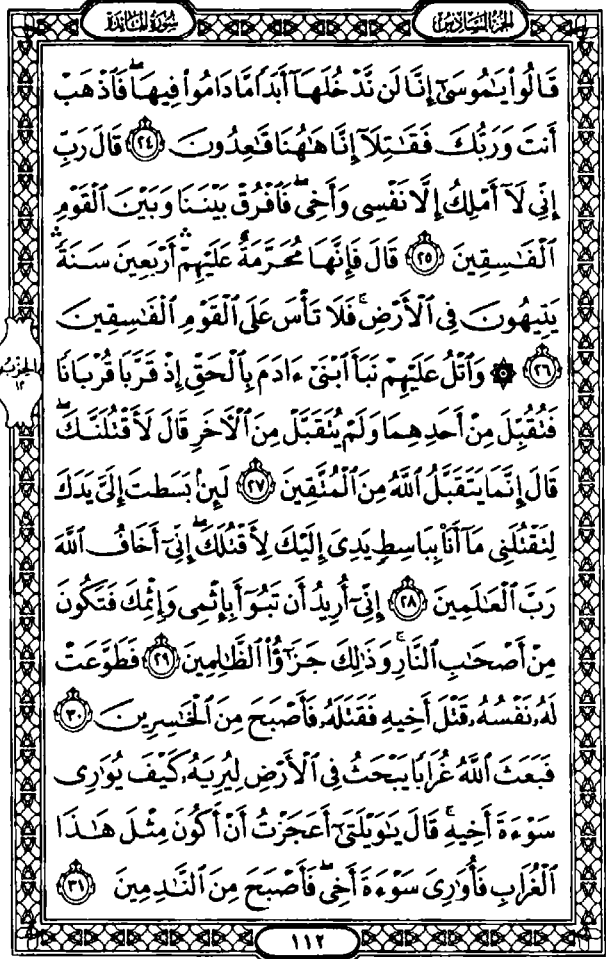 الجزء السادس
سورة المائدة
قَالُواْ يَٰمُوسَىٰٓ إِنَّا لَن نَّدۡخُلَهَآ أَبَدٗا مَّا دَامُواْ فِيهَا فَٱذۡهَبۡ
أَنتَ وَرَبُّكَ فَقَٰتِلَآ إِنَّا هَٰهُنَا قَٰعِدُونَ ٢٤ قَالَ رَبِّ
إِنِّي لَآ أَمۡلِكُ إِلَّا نَفۡسِي وَأَخِيۖ فَٱفۡرُقۡ بَيۡنَنَا وَبَيۡنَ ٱلۡقَوۡمِ
ٱلۡفَٰسِقِينَ ٢٥ قَالَ فَإِنَّهَا مُحَرَّمَةٌ عَلَيۡهِمۡۛ أَرۡبَعِينَ سَنَةٗۛ
يَتِيهُونَ فِي ٱلۡأَرۡضِۚ فَلَا تَأۡسَ عَلَى ٱلۡقَوۡمِ ٱلۡفَٰسِقِينَ
٢٦ ۞ وَٱتۡلُ عَلَيۡهِمۡ نَبَأَ ٱبۡنَيۡ ءَادَمَ بِٱلۡحَقِّ إِذۡ قَرَّبَا قُرۡبَانٗا
فَتُقُبِّلَ مِنۡ أَحَدِهِمَا وَلَمۡ يُتَقَبَّلۡ مِنَ ٱلۡأٓخَرِ قَالَ لَأَقۡتُلَنَّكَۖ
قَالَ إِنَّمَا يَتَقَبَّلُ ٱللَّهُ مِنَ ٱلۡمُتَّقِينَ ٢٧ لَئِنۢ بَسَطتَ إِلَيَّ يَدَكَ
لِتَقۡتُلَنِي مَآ أَنَا۠ بِبَاسِطٖ يَدِيَ إِلَيۡكَ لِأَقۡتُلَكَۖ إِنِّيٓ أَخَافُ ٱللَّهَ
رَبَّ ٱلۡعَٰلَمِينَ ٢٨ إِنِّيٓ أُرِيدُ أَن تَبُوٓأَ بِإِثۡمِي وَإِثۡمِكَ فَتَكُونَ
مِنۡ أَصۡحَٰبِ ٱلنَّارِۚ وَذَٰلِكَ جَزَٰٓؤُاْ ٱلظَّٰلِمِينَ ٢٩ فَطَوَّعَتۡ
لَهُۥ نَفۡسُهُۥ قَتۡلَ أَخِيهِ فَقَتَلَهُۥ فَأَصۡبَحَ مِنَ ٱلۡخَٰسِرِينَ ٣٠
فَبَعَثَ ٱللَّهُ غُرَابٗا يَبۡحَثُ فِي ٱلۡأَرۡضِ لِيُرِيَهُۥ كَيۡفَ يُوَٰرِي
سَوۡءَةَ أَخِيهِۚ قَالَ يَٰوَيۡلَتَىٰٓ أَعَجَزۡتُ أَنۡ أَكُونَ مِثۡلَ هَٰذَا
ٱلۡغُرَابِ فَأُوَٰرِيَ سَوۡءَةَ أَخِيۖ فَأَصۡبَحَ مِنَ ٱلنَّٰدِمِينَ ٣١
الحزب
١٢
١١٢